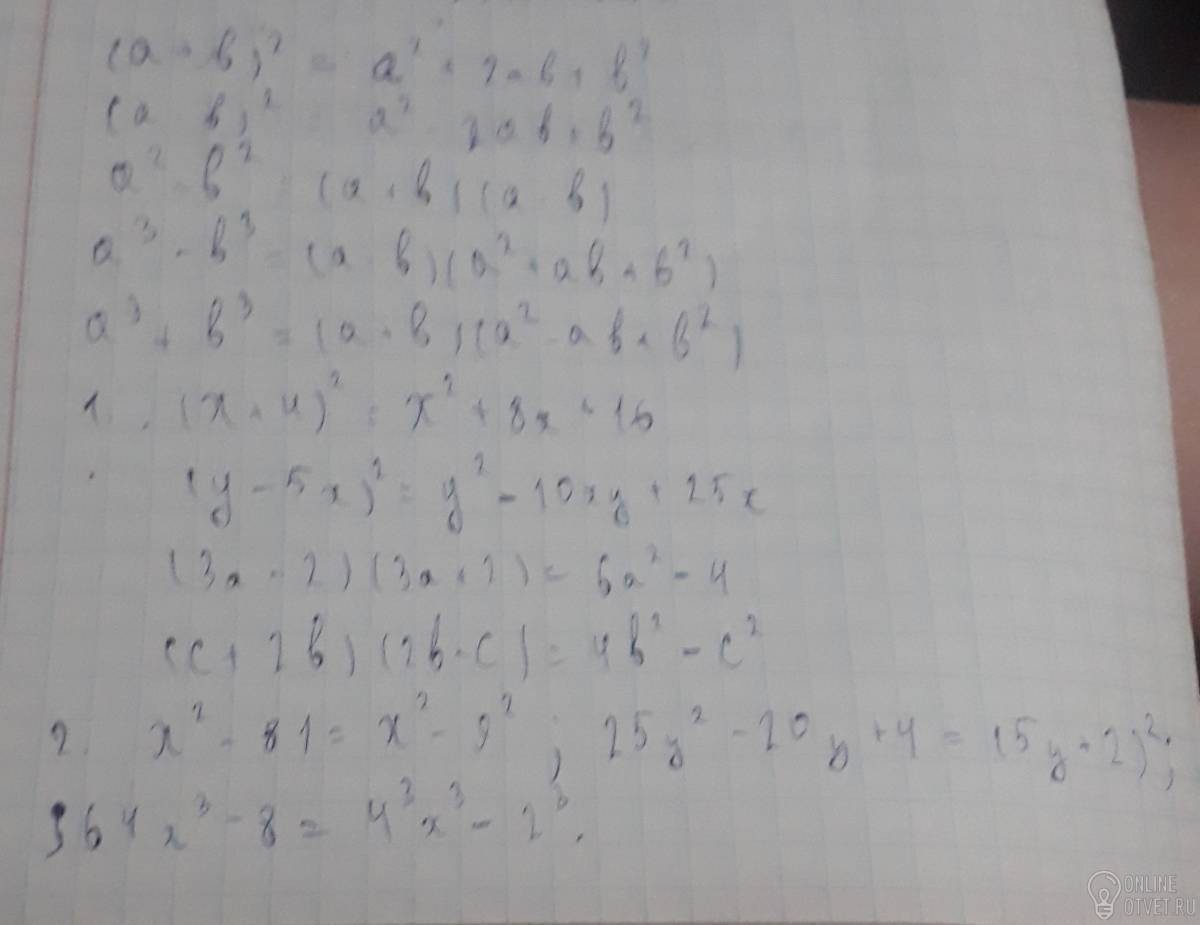 (a + b)² = a² + 2ab + b²
(a - b)² = a² - 2ab + b²
a² - b² = (a + b)(a - b)
a³ - b³ = (a - b)(a² + ab + b²)
a³ + b³ = (a + b)(a² - ab + b²)
1. (x + 4)² = x² + 8x + 16
(y - 5x)² = y² - 10xy + 25x
(3a - 2)(3a + 2) = 6a² - 4
(c + 2b)(2b - c) = 4b² - c²
2. x² - 81 = x² - 9² ; 25y² - 20y + 4 = (5y - 2)²;
64x³ - 8 = 4³x³ - 2³.
ONLINE
OTVET.RU